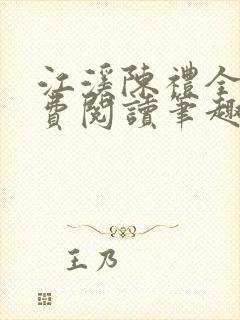 江溪陳禮全
費閱讀筆趣
王乃